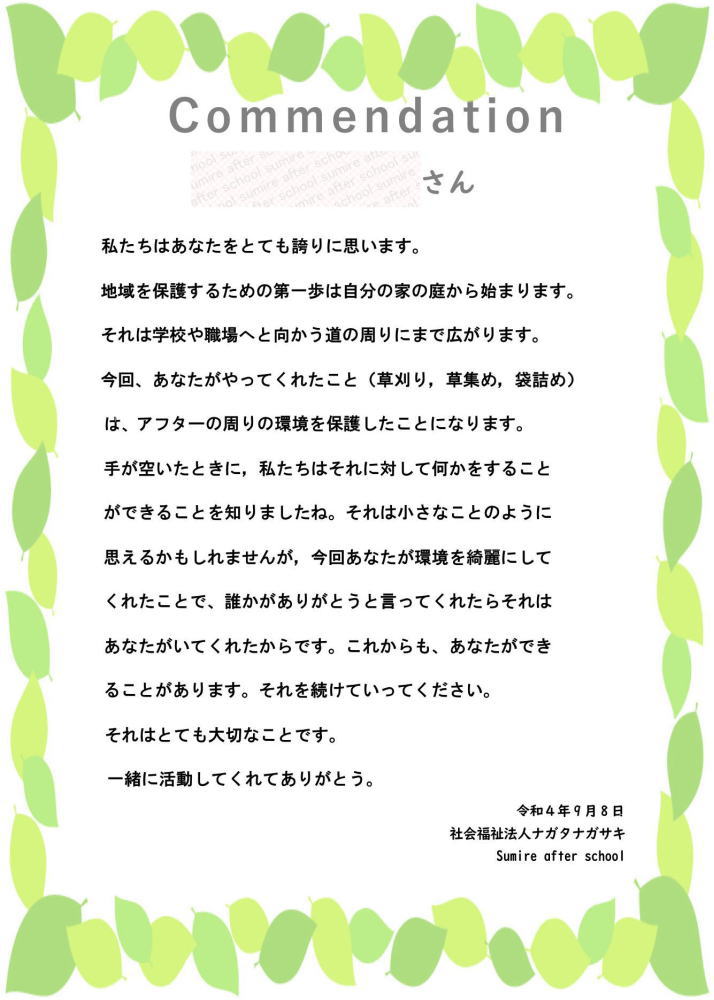 Commendation
さん
私たちはあなたをとても誇りに思います。
地域を保護するための第一歩は自分の家の庭から始まります。
それは学校や職場へと向かう道の周りにまで広がります。
今回、あなたがやってくれたこと（草刈り，草集め，袋詰め）
は、アフターの周りの環境を保護したことになります。
手が空いたときに，私たちはそれに対して何かをすること
ができることを知りましたね。それは小さなことのように
思えるかもしれませんが，今回あなたが環境を綺麗にして
くれたことで、誰かがありがとうと言ってくれたらそれは
あなたがいてくれたからです。これからも、あなたができ
ることがあります。それを続けていってください。
それはとても大切なことです。
一緒に活動してくれてありがとう。
令和４年９月８日
社会福祉法人ナガタナガサキ
Sumire after school